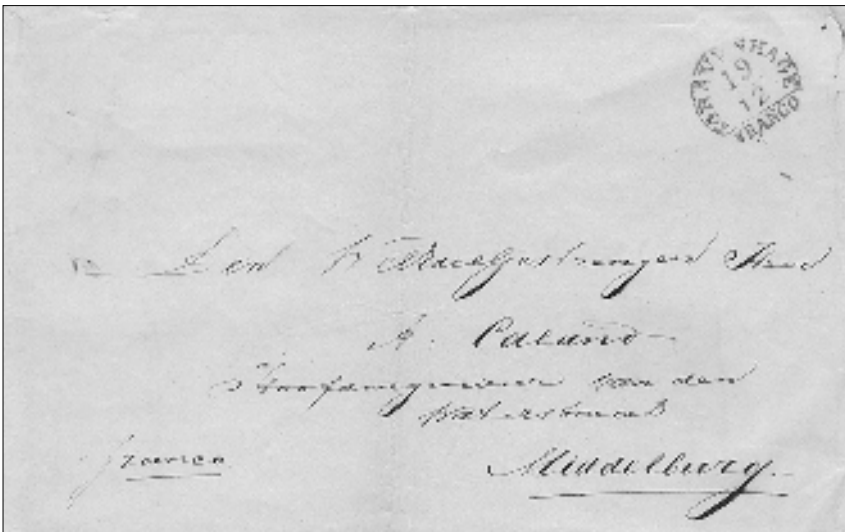 'S GRAVENHAGE
19
12
FRANCO
Den WelEdelGestrengen Heer
A. Caland
Hoofdingenieur van den
Waterstaat
franco
Middelburg.